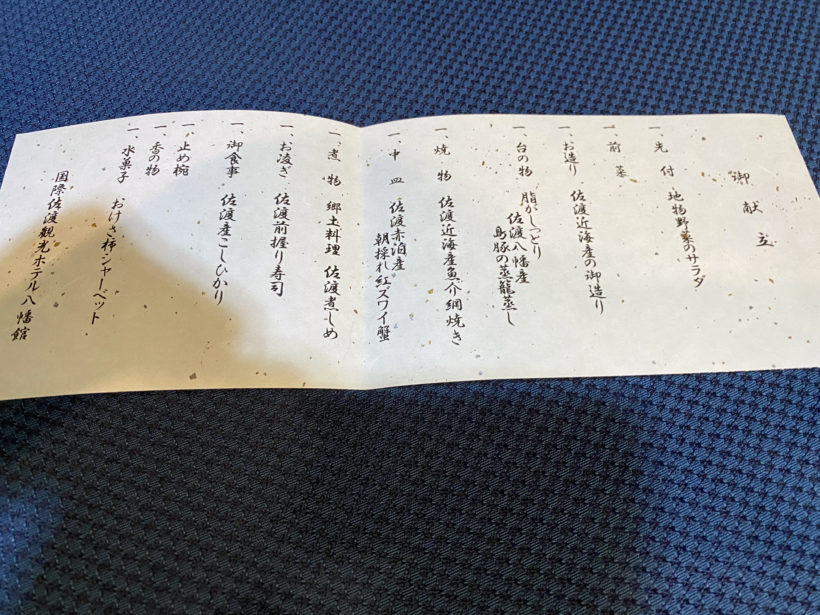 御献立
一、先付 地物野菜のサラダ
一、前菜
一、お造り 佐渡近海産の御造り
一、台の物 脂がしっとり
佐渡八幡産
島豚の蒸籠蒸し
一、焼物 佐渡近海産魚介網焼き
一、中皿 佐渡赤泊産
朝採れ紅ズワイ蟹
一、煮物 郷土料理 佐渡煮しめ
一、お凌ぎ 佐渡前握り寿司
一、御食事 佐渡産こしひかり
一、止め椀
一、香の物
一、水菓子 おけさ柿シャーベット
国際佐渡観光ホテル八幡館